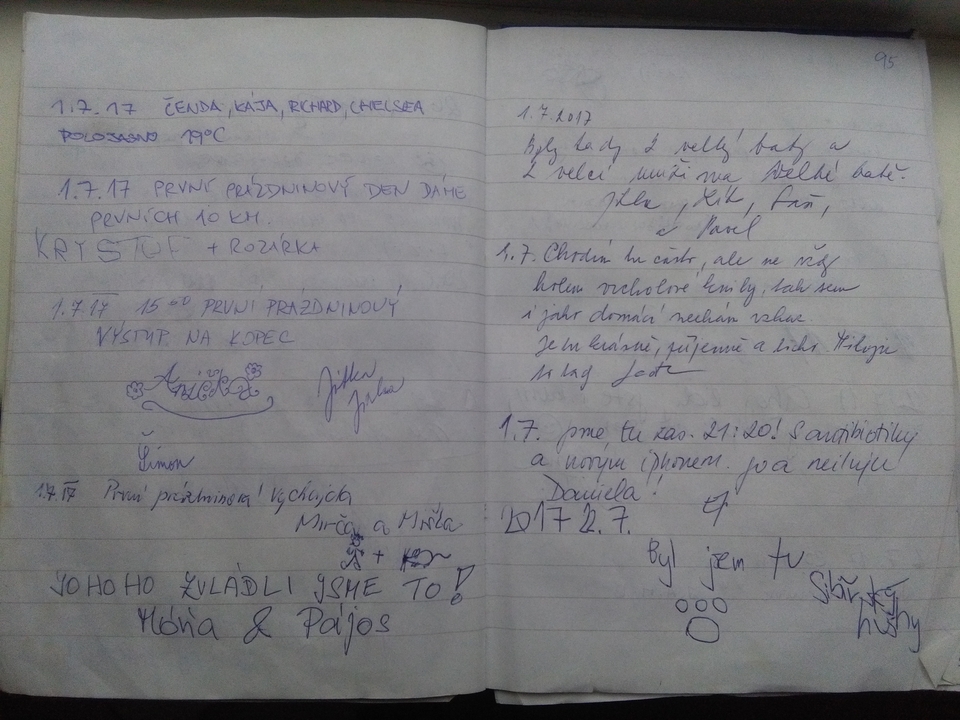 1.7.17 ČENDA, KÁJA, RICHARD, CHELSEA
POLOJASNO 19°C
1.7.17 PRVNÍ PRÁZDNINOVÝ DEN DÁME
PRVNÍCH 10 KM.
KRYŠTOF + ROZÁRKA
1.7.17 15 00 PRVNÍ PRÁZDNINOVÝ
VÝSTUP NA KOPEC
Anička
Jitka
Šimon
1.7.17 První prázdninová vycházka
Mirča a Míša
+
JOHOHO ZVLÁDLI JSME TO!
Móňa & Pájos
95
1.7.2017
Byly tady 2 velký baby a
2 velcí muži na Velké babě.
Jitka, a Pavel
1.7. Chodím tu často, ale ne vždy
kolem vrcholové knihy, tak sem
i jako domácí nechám vzkaz
Je tu krásně, příjemně a ticho. Miluju
1.7. jsme tu zas. 21:20! S antibiotiky
a novým iphonem. jo a miluju
Daniela!
2017 2.7.
Byl jem tu